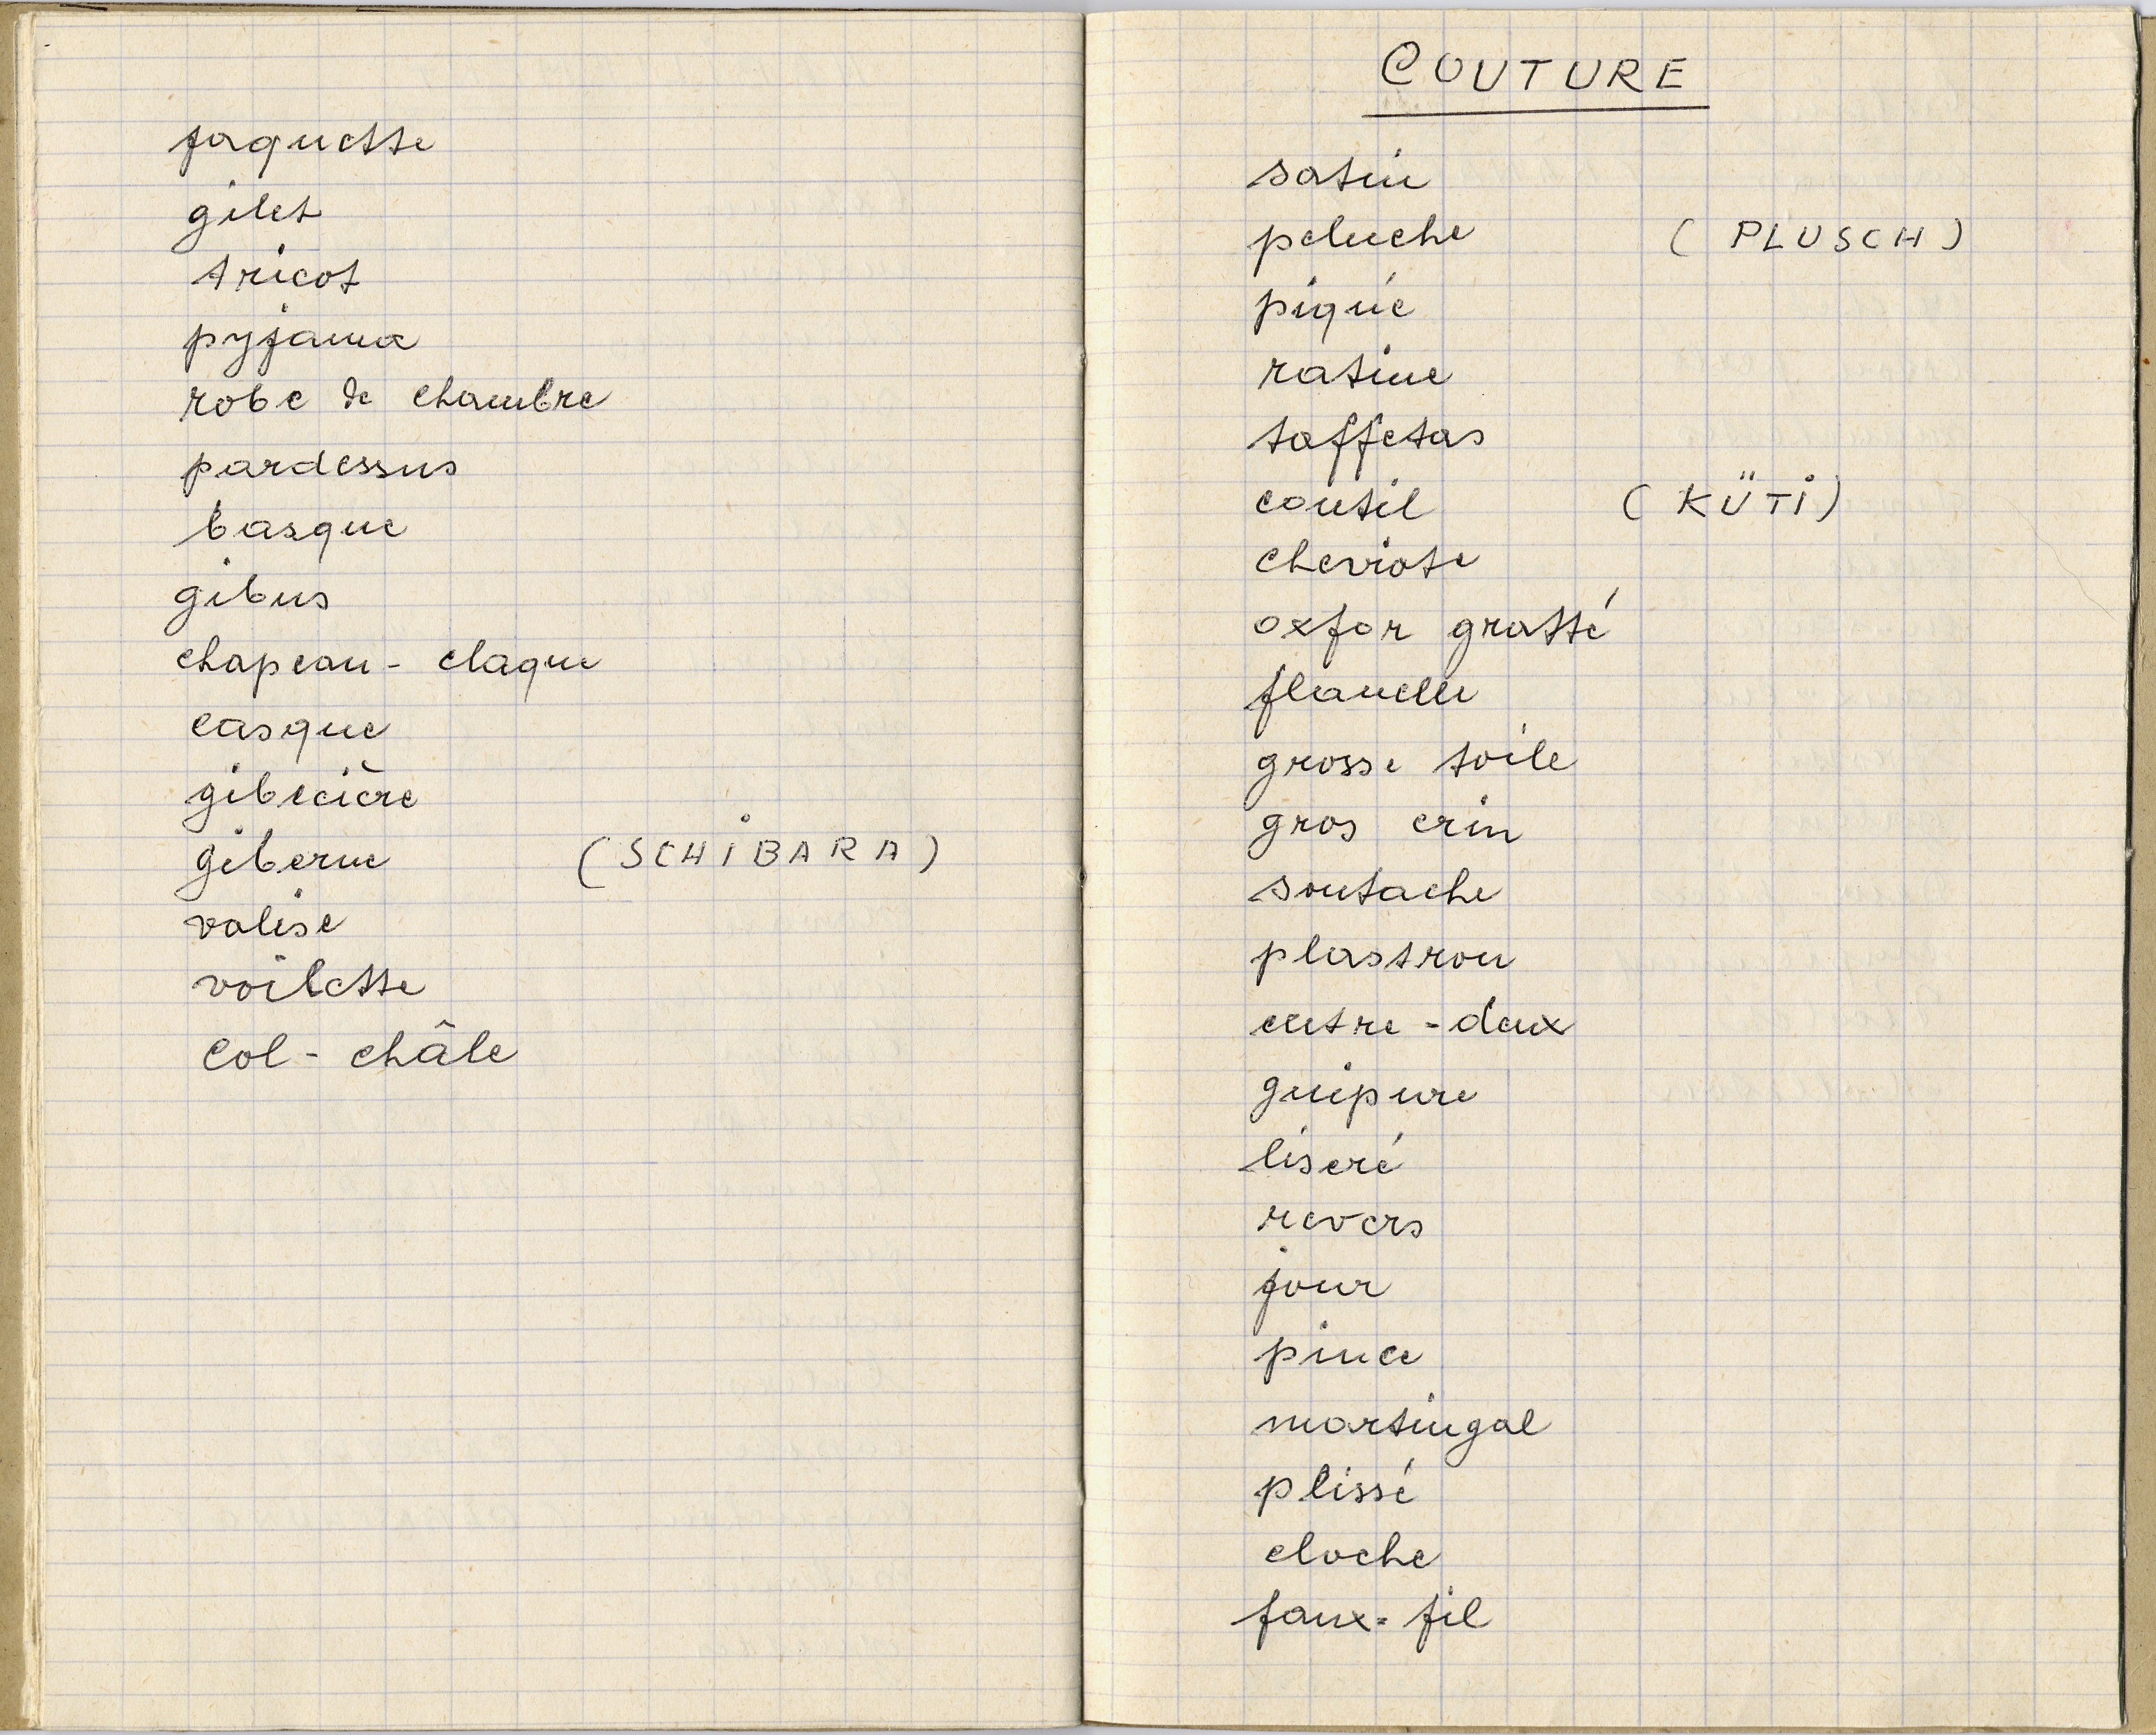 jaquette
gilet
tricot
pyjama
robe de chambre
pardessus
basque
gibus
chapeau - claque
casque
gibecière
giberne (SCHİBARA)
valise
voilette
col - châle
COUTURE
satin
peluche (PLUSCH)
piqué
ratine
taffetas
coutil (KÜTİ)
cheviote
oxfor gratté
flanelle
grosse toile
gros crin
soutache
plastron
entre - deux
guipure
liseré
revers
jour
pince
martingal
plissé
cloche
faux - fil